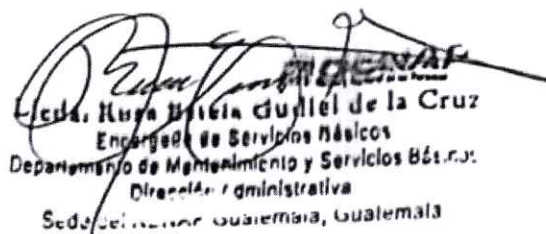 Licda. Huga Gudiel de la Cruz
Encargada de Servicios Básicos
Departamento de Mantenimiento y Servicios Básicos
Dirección Administrativa
Sede Guatemala, Guatemala